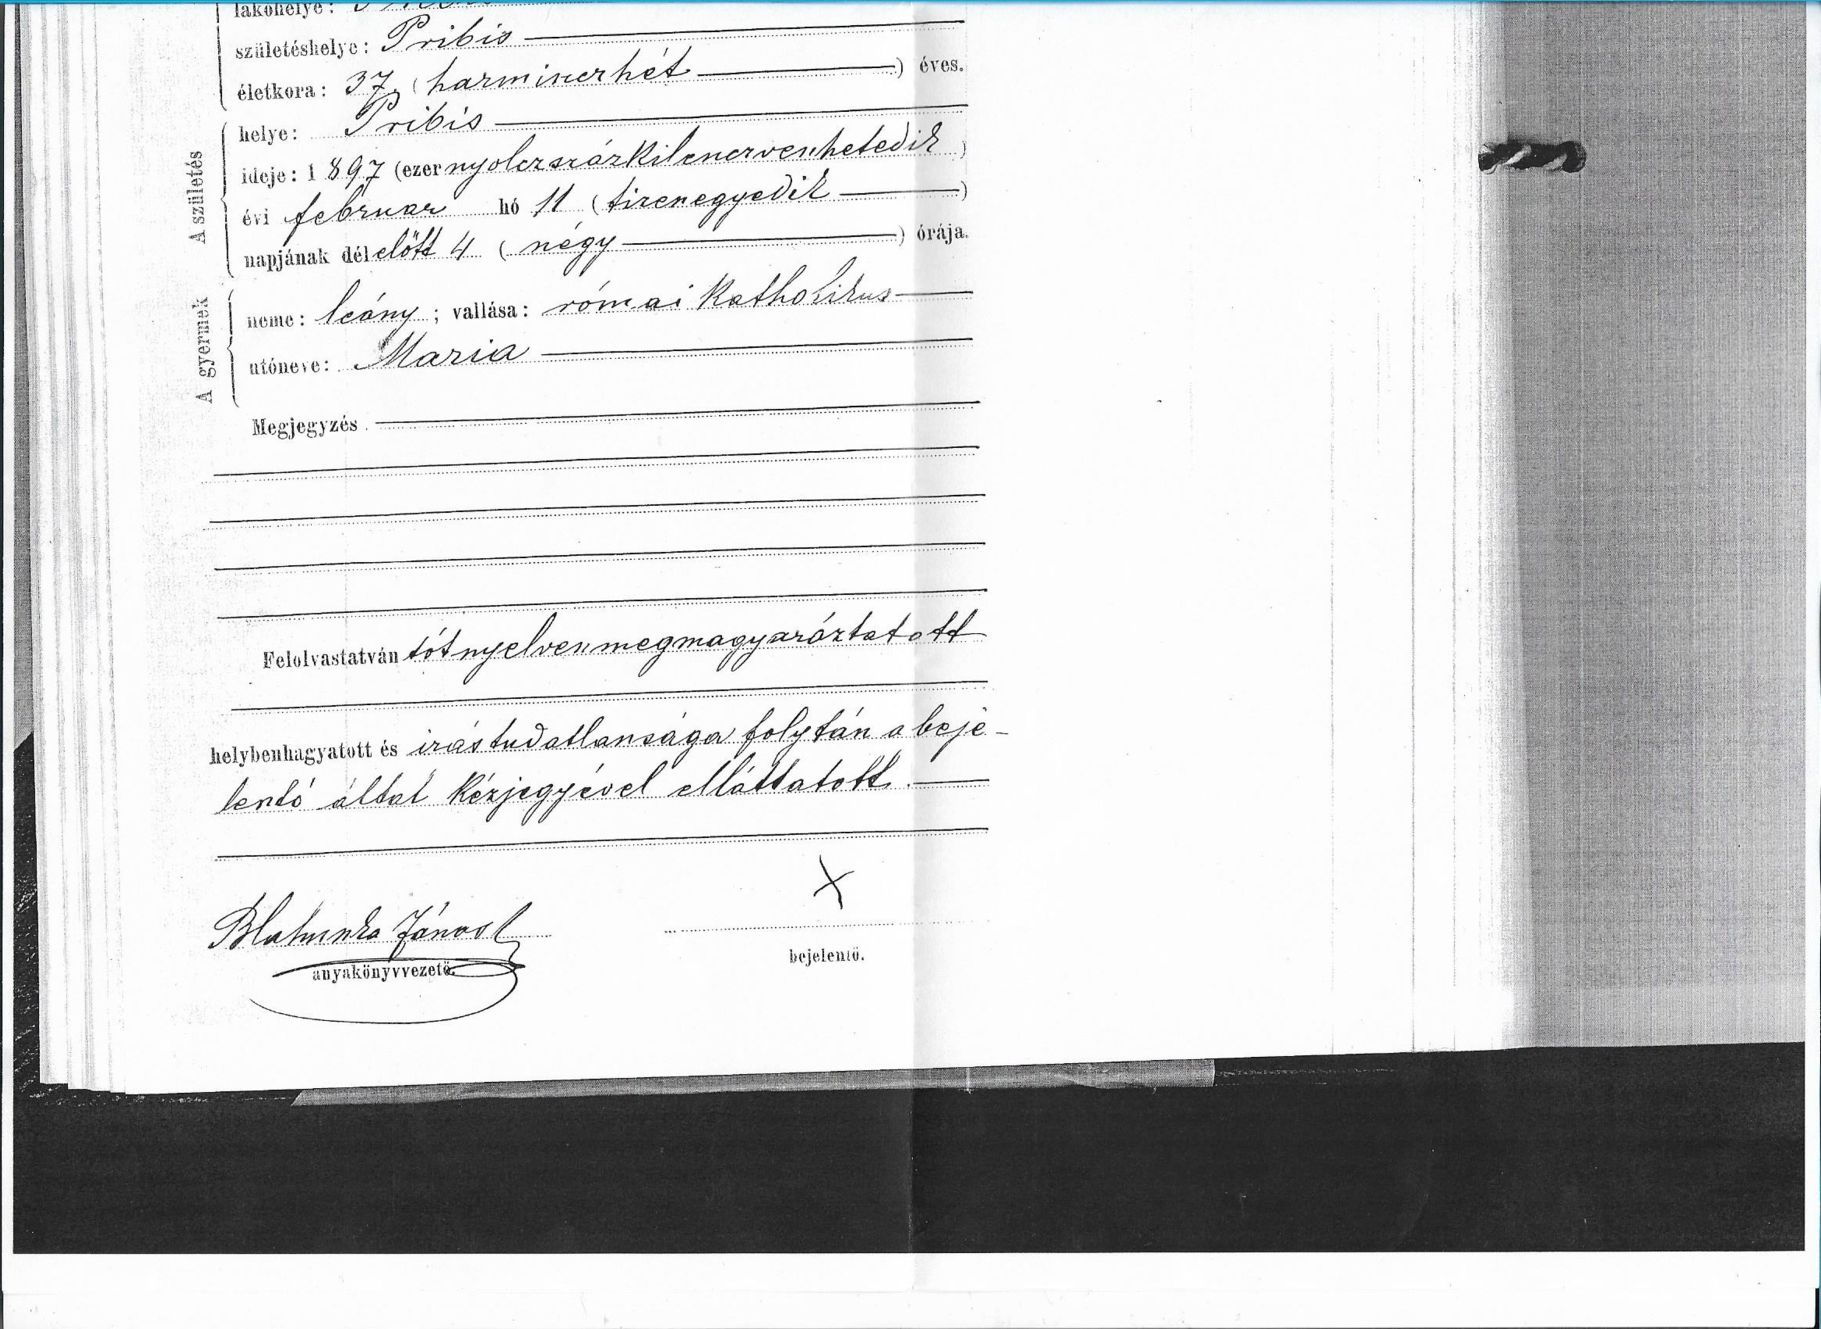 lakóhelye:
születéshelye: Pribis
életkora: 37 (harminczhét) éves.
A születés
helye: Pribis
ideje: 1897 (ezernyolczszázkilenczvenhetedik)
évi februar hó 11 (tizenegyedik)
napjának délelőtt 4 (négy) órája.
A gyermek
neme: leány; vallása: római katholikus
utóneve: Maria
Megjegyzés
Felolvastatván tót nyelven megmagyaráztatott
helybenhagyatott és irástudatlansága folytán a beje-
lentő által kézjegyével elláttatott.
János
anyakönyvvezető.
X
bejelentő.